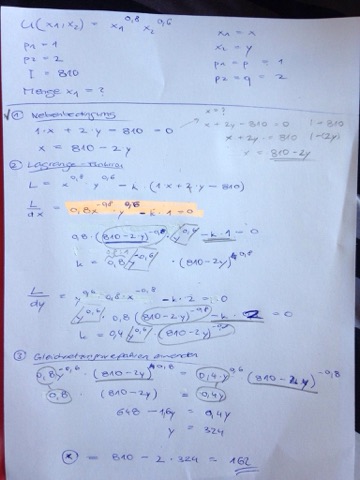 U(x1,x2) = x1^0,8 x2^0,6
x1 = x
p1 = 1
x2 = y
p2 = 2
p1 = p = 1
I = 810
p2 = q = 2
Menge x1 = ?
① Nebenbedingung
x = ?
1·x + 2·y - 810 = 0
x + 2y - 810 = 0 | + 810
x + 2y = 810 | (-2y)
x = 810 - 2y
x = 810 - 2y
② Lagrange-Funktion
L = x^0,8 · y^0,6 - k · (1·x + 2·y - 810)
L/dx = 0,8x^-0,8 · y^0,6 - k · 1 = 0
0,8 · (810-2y)^-0,8 · y^0,6 - k · 1 = 0
k = 0,8 y^-0,6 · (810-2y)^0,8
L/dy = y^0,6 · 0,8 · x^-0,8 - k · 2 = 0
y^0,6 · 0,8 (810-2y)^-0,8 - k · 2 = 0
k = 0,4 y^-0,6 · (810-2y)^-0,8
③ Gleichsetzungsverfahren anwenden
0,8 y^-0,6 · (810-2y)^0,8 = 0,4 · y^0,6 · (810-2y)^-0,8
0,8 · (810-2y) = 0,4y
648 - 1,6y = 0,4y
y = 324
x = 810 - 2 · 324 = 162